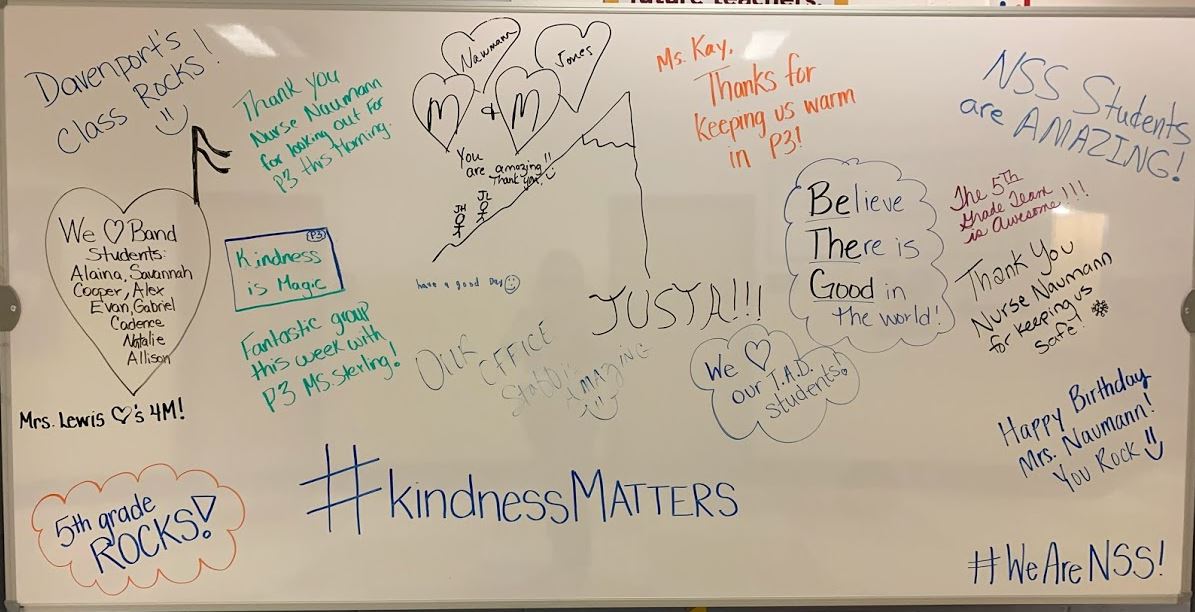 future teachers.
Davenport's
Class Rocks!
Thank you
Nurse Naumann
for looking out for
P3 this Morning.
Naumann
Jones
M & M
You
are amazing!!
Thank you
JH
JL
have a good Day
Ms. Kay,
Thanks for
keeping us warm
in P3!
NSS Students
are AMAZING!
We ♡ Band
Students:
Alaina, Savannah
Cooper, Alex
Evan, Gabriel
Cadence
Natalie
Allison
Mrs. Lewis ♡'s 4M!
P3
Kindness
is Magic
Fantastic group
this week with
P3 Ms. Sterling!
OUR OFFICE
Staff is
AMAZING
JUSTA!!!
Believe
There is
Good in
the world!
We ♡
our T.A.D.
students!
The 5th
Grade Team
is Awesome!!!
Thank You
Nurse Naumann
for keeping us
safe!
Happy Birthday
Mrs. Naumann!
You Rock
5th grade
ROCKS!
#kindnessMATTERS
#WeAreNSS!